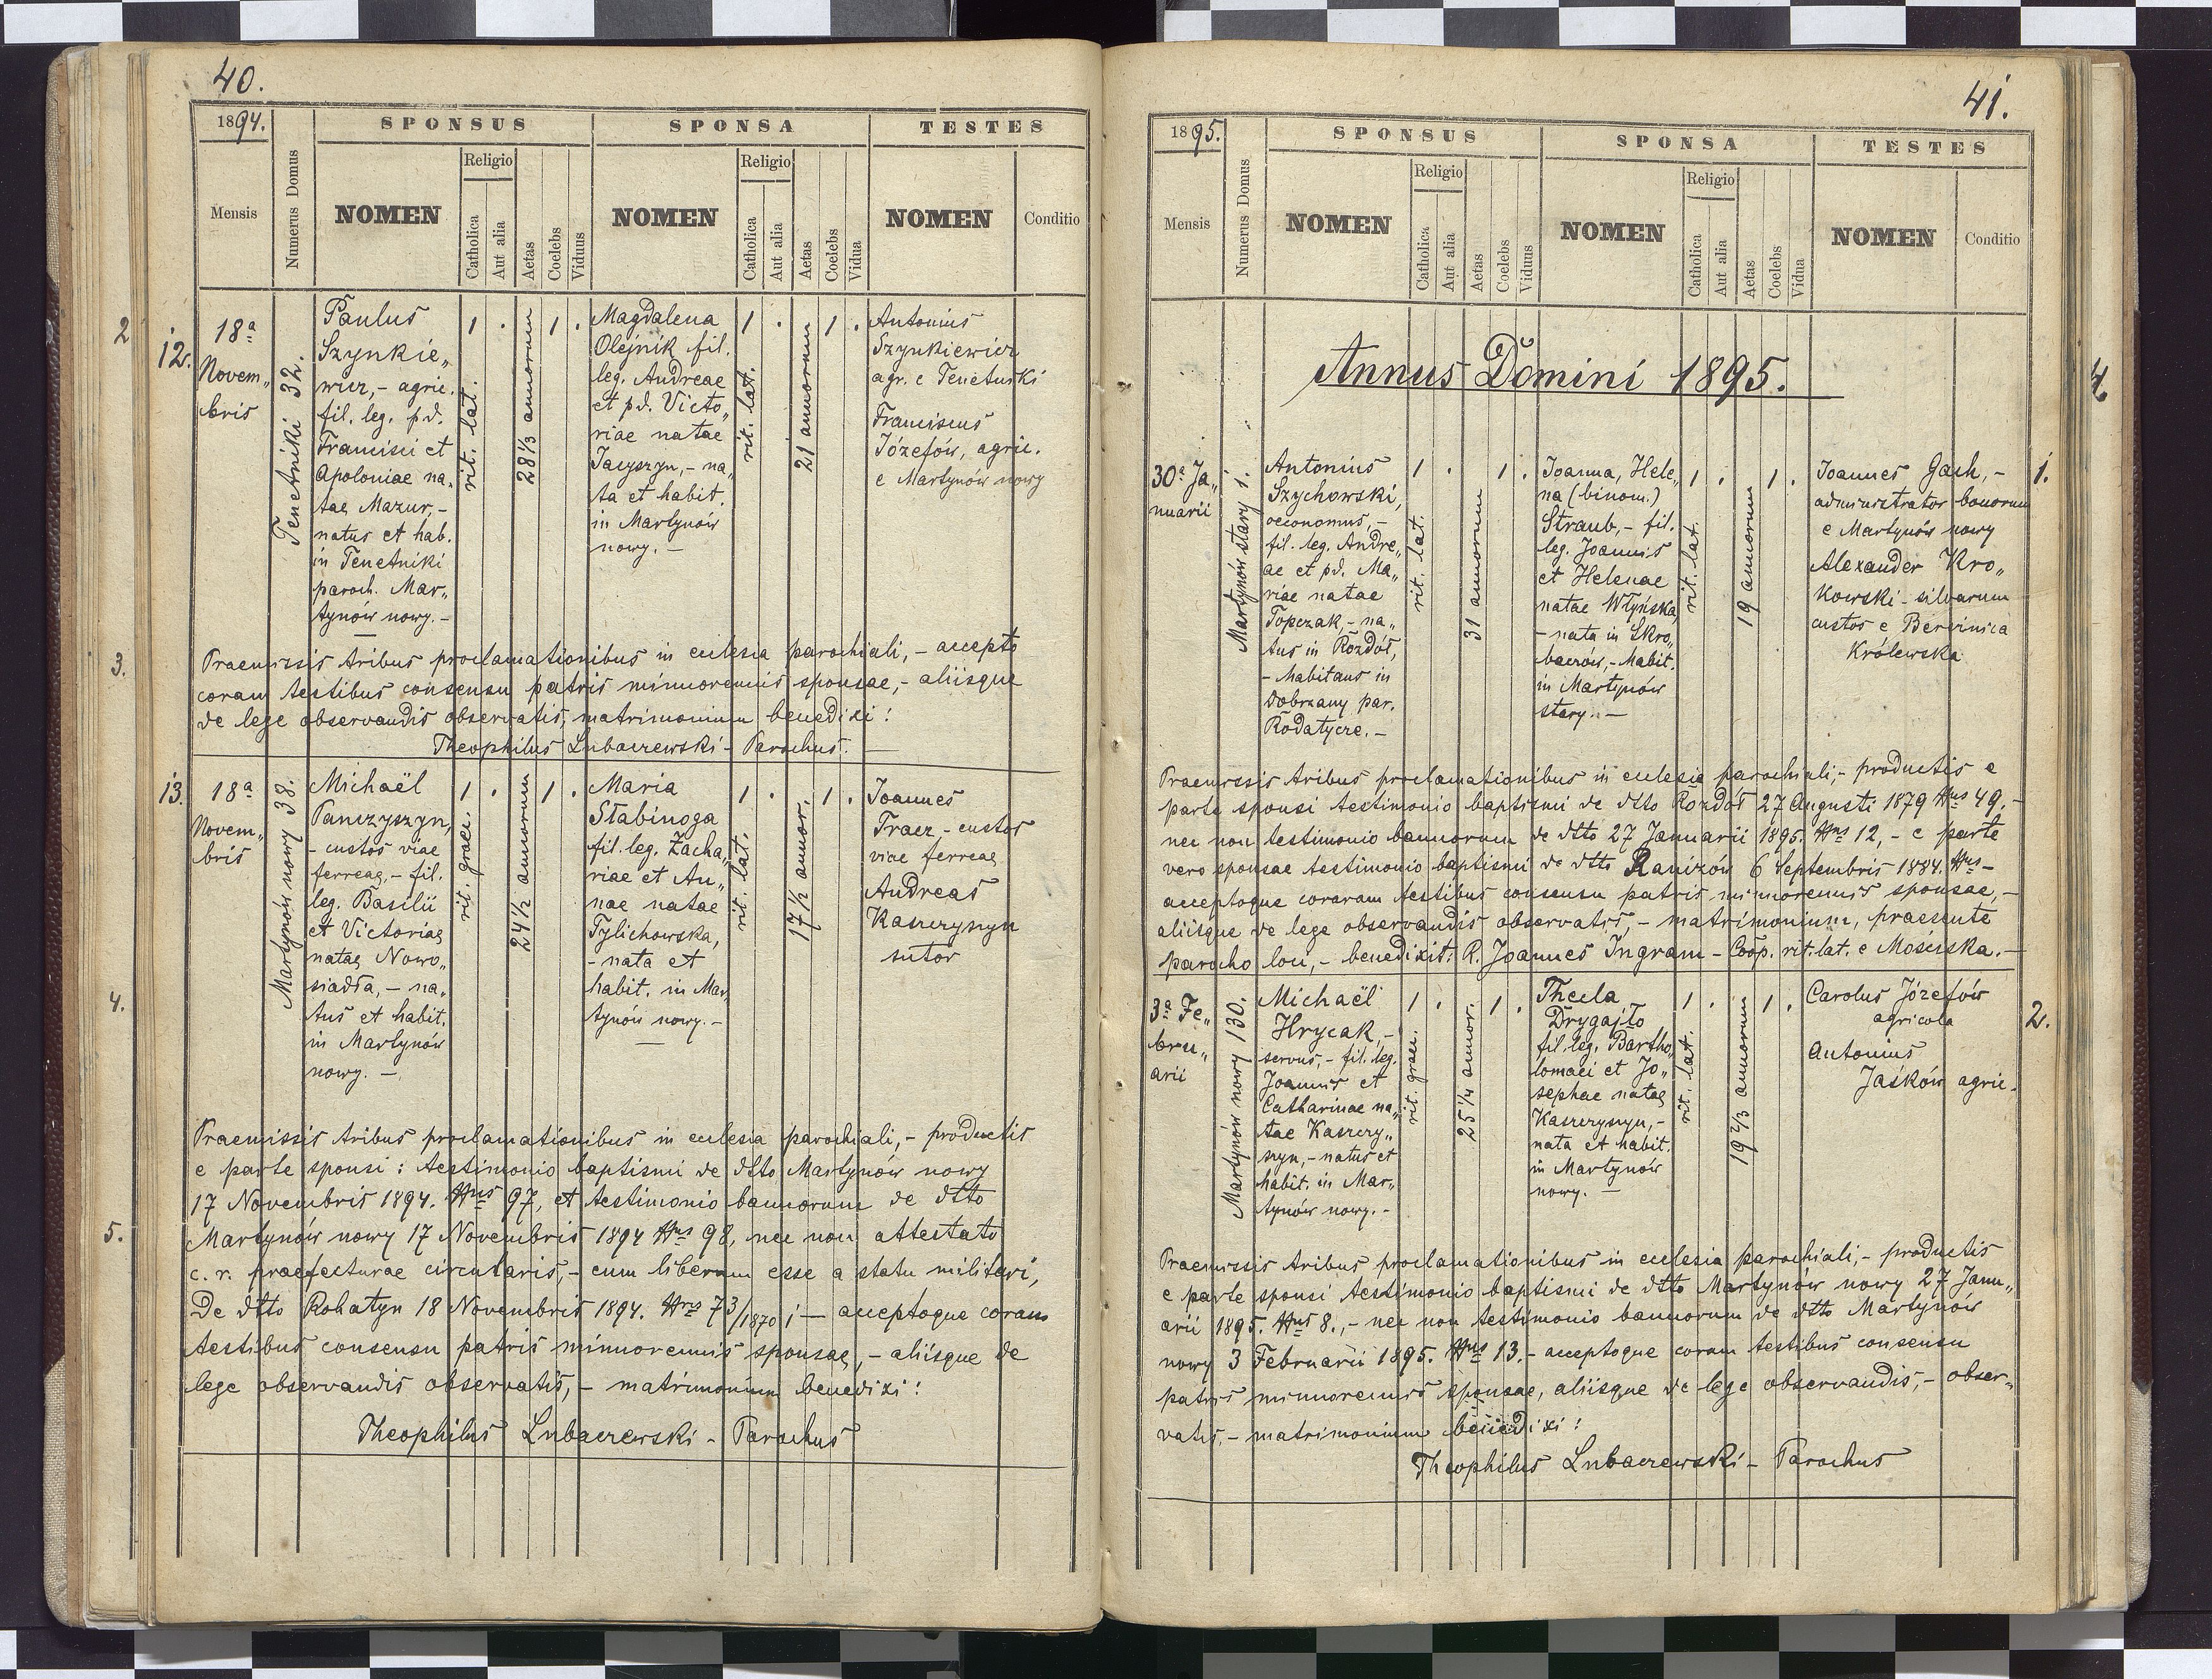 40.
1894.
SPONSUS
SPONSA
TESTES
Mensis
Numerus Domus
NOMEN
Religio
Catholica
Aut alia
Aetas
Coelebs
Viduus
NOMEN
Religio
Catholica
Aut alia
Aetas
Coelebs
Vidua
NOMEN
Conditio
2
12.
18ª
Novem„
bris
Tenetniki 32.
Paulus
Szynkie„
wicz, - agric.
fil. leg. pd.
Francisci et
Apoloniae na„
tae Mazur, -
natus et hab.
in Tenetniki
paroch. Mar„
tynów nowy. -
1 .
rit. lat.
28 1/3 annorum
1 .
Magdalena
Olejnik fil.
leg. Andreae
et pd. Victo„
riae natae
Jacyszyn, - na„
ta et habit.
in Martynów
nowy. -
1 .
rit. lat.
21 annorum
1 .
Antonius
Szynkiewicz
agr. e Tenetniki
Franciscus
Józefów, agric.
e Martynów nowy
3.
Praemissis tribus proclamationibus in ecclesia parochiali, - accepto
coram testibus consensu patris minorennis sponsae, - aliisque
de lege observandis observatis, matrimonium benedixi!
Theophilus Lubaczewski - Parochus. -
13.
18ª
Novem„
bris
Martynów nowy 38.
Michaël
Panczyszyn,
- custos viae
ferreae, - fil.
leg. Basilii
et Victoriae
natae Nowo„
siadła, - na„
tus et habit.
in Martynów
nowy. -
1 .
rit. graec.
24 1/2 annorum
1 .
Maria
Stabinoga
fil. leg. Zacha„
riae et An„
nae natae
Tylichowska,
- nata et
habit. in Mar„
tynów nowy. -
1 .
rit. lat.
17 1/2 annor.
1 .
Joannes
Tracz - custos
viae ferreae
Andreas
Kaszczyszyn
sutor
4.
Praemissis tribus proclamationibus in ecclesia parochiali, - productis
e parte sponsi: testimonio baptismi de dtto Martynów nowy
17 Novembris 1894. Nrus 97, et testimonio bannorum de dtto
5.
Martynów nowy 17 Novembris 1894 Nrus 98, nec non attestato
c. r. praefecturae circularis, - eum liberum esse a statu militari,
De dtto Rohatyn 18 Novembris 1894. Nrus 73/1870 ; - acceptoque coram
testibus consensu patris minorennis sponsae, - aliisque de
lege observandis observatis, - matrimonium benedixi!
Theophilus Lubaczewski - Parochus
41.
1895.
SPONSUS
SPONSA
TESTES
Mensis
Numerus Domus
NOMEN
Religio
Catholica
Aut alia
Aetas
Coelebs
Viduus
NOMEN
Religio
Catholica
Aut alia
Aetas
Coelebs
Vidua
NOMEN
Conditio
Annus Domini 1895.
4.
30ª Ja„
nuarii
Martynów stary 1.
Antonius
Szychowski,
oeconomus, -
fil. leg. Andre„
ae et pd. Ma„
riae natae
Topczak, - na„
tus in Rozdół,
- habitans in
Dobrzany par.
Rodatycze. -
1 .
rit. lat.
31 annorum
1 .
Joanna, Hele„
na (binom.)
Straub, - fil.
leg. Joannis
et Helenae
natae Włyńska,
- nata in Skro„
baczów, - habit.
in Martynów
stary. -
1 .
rit. lat.
19 annorum
1 .
Joannes Gach, -
administrator bonorum
e Martynów nowy
Alexander Kro„
kowski - silvarum
custos e Bereźnica
Królewska
1.
Praemissis tribus proclamationibus in ecclesia parochiali, - productis e
parte sponsi testimonio baptismi de dtto Rozdół 27 Augusti 1879 Nrus 49. -
nec non testimonio bannorum de dtto 27 Januarii 1895. Nrus 12, - e parte
vero sponsae testimonio baptismi de dtto Raniżów 6 Septembris 1884. Nrus -
acceptoque coraram testibus consensu patris minorennis sponsae, -
aliisque de lege observandis observatis, - matrimonium, praesente
parocho loci, - benedixit: R. Joannes Ingram - Coop. rit. lat. e Mościska. -
3ª Fe„
bru„
arii
Martynów nowy 130.
Michaël
Hrycak, -
servus, - fil. leg.
Joannis et
Catharinae na„
tae Kaszczy„
szyn, - natus et
habit. in Mar„
tynów nowy. -
1 .
rit. graec.
25 1/4 annor.
1 .
Thecla
Drygajło
fil. leg. Bartho„
lomaei et Jo„
sephae natae
Kaszczyszyn, -
nata et habit.
in Martynów
nowy. -
1 .
rit. lat.
19 2/3 annorum
1 .
Carolus Józefów
agricola
Antonius
Jaśków agric.
2.
Praemissis tribus proclamationibus in ecclesia parochiali, - productis
e parte sponsi testimonio baptismi de dtto Martynów nowy 27 Janu„
arii 1895. Nrus 8., - nec non testimonio bannorum de dtto Martynów
nowy 3 Februarii 1895. Nrus 13. - acceptoque coram testibus consensu
patris minorennis sponsae, aliisque de lege observandis, - obser„
vatis, - matrimonium benedixi!
Theophilus Lubaczewski - Parochus